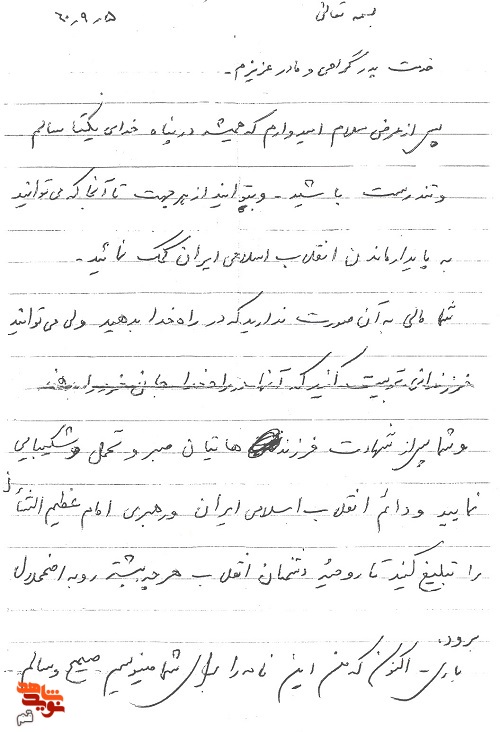 بسمه تعالی
۶۰٫۹٫۵
خدمت پدر گرامی و مادر عزیزم -
پس از عرض سلام امیدوارم که همیشه در پناه خدای یکتا سالم
و تندرست باشید - و بتوانید از هر جهت تا آنجا که می توانید
به پایدار ماندن انقلاب اسلامی ایران کمک نمائید -
شما مالی به آن صورت ندارید که در راه خدا بدهید ولی می توانید
فرزندانی تربیت کنید که آنها در راه خدا جان خود را بدهند
و شما پس از شهادت فرزند هایتان صبر و تحمل و شکیبایی
نمایید و دائم انقلاب اسلامی ایران و رهبری امام عظیم الشأن
را تبلیغ کنید تا روحیهٔ دشمنان انقلاب هر چه بیشتر رو به اضمحلال
برود.
باری - اکنون که من این نامه را برای شما مینویسم صحیح و سالم
شاهد
نوید